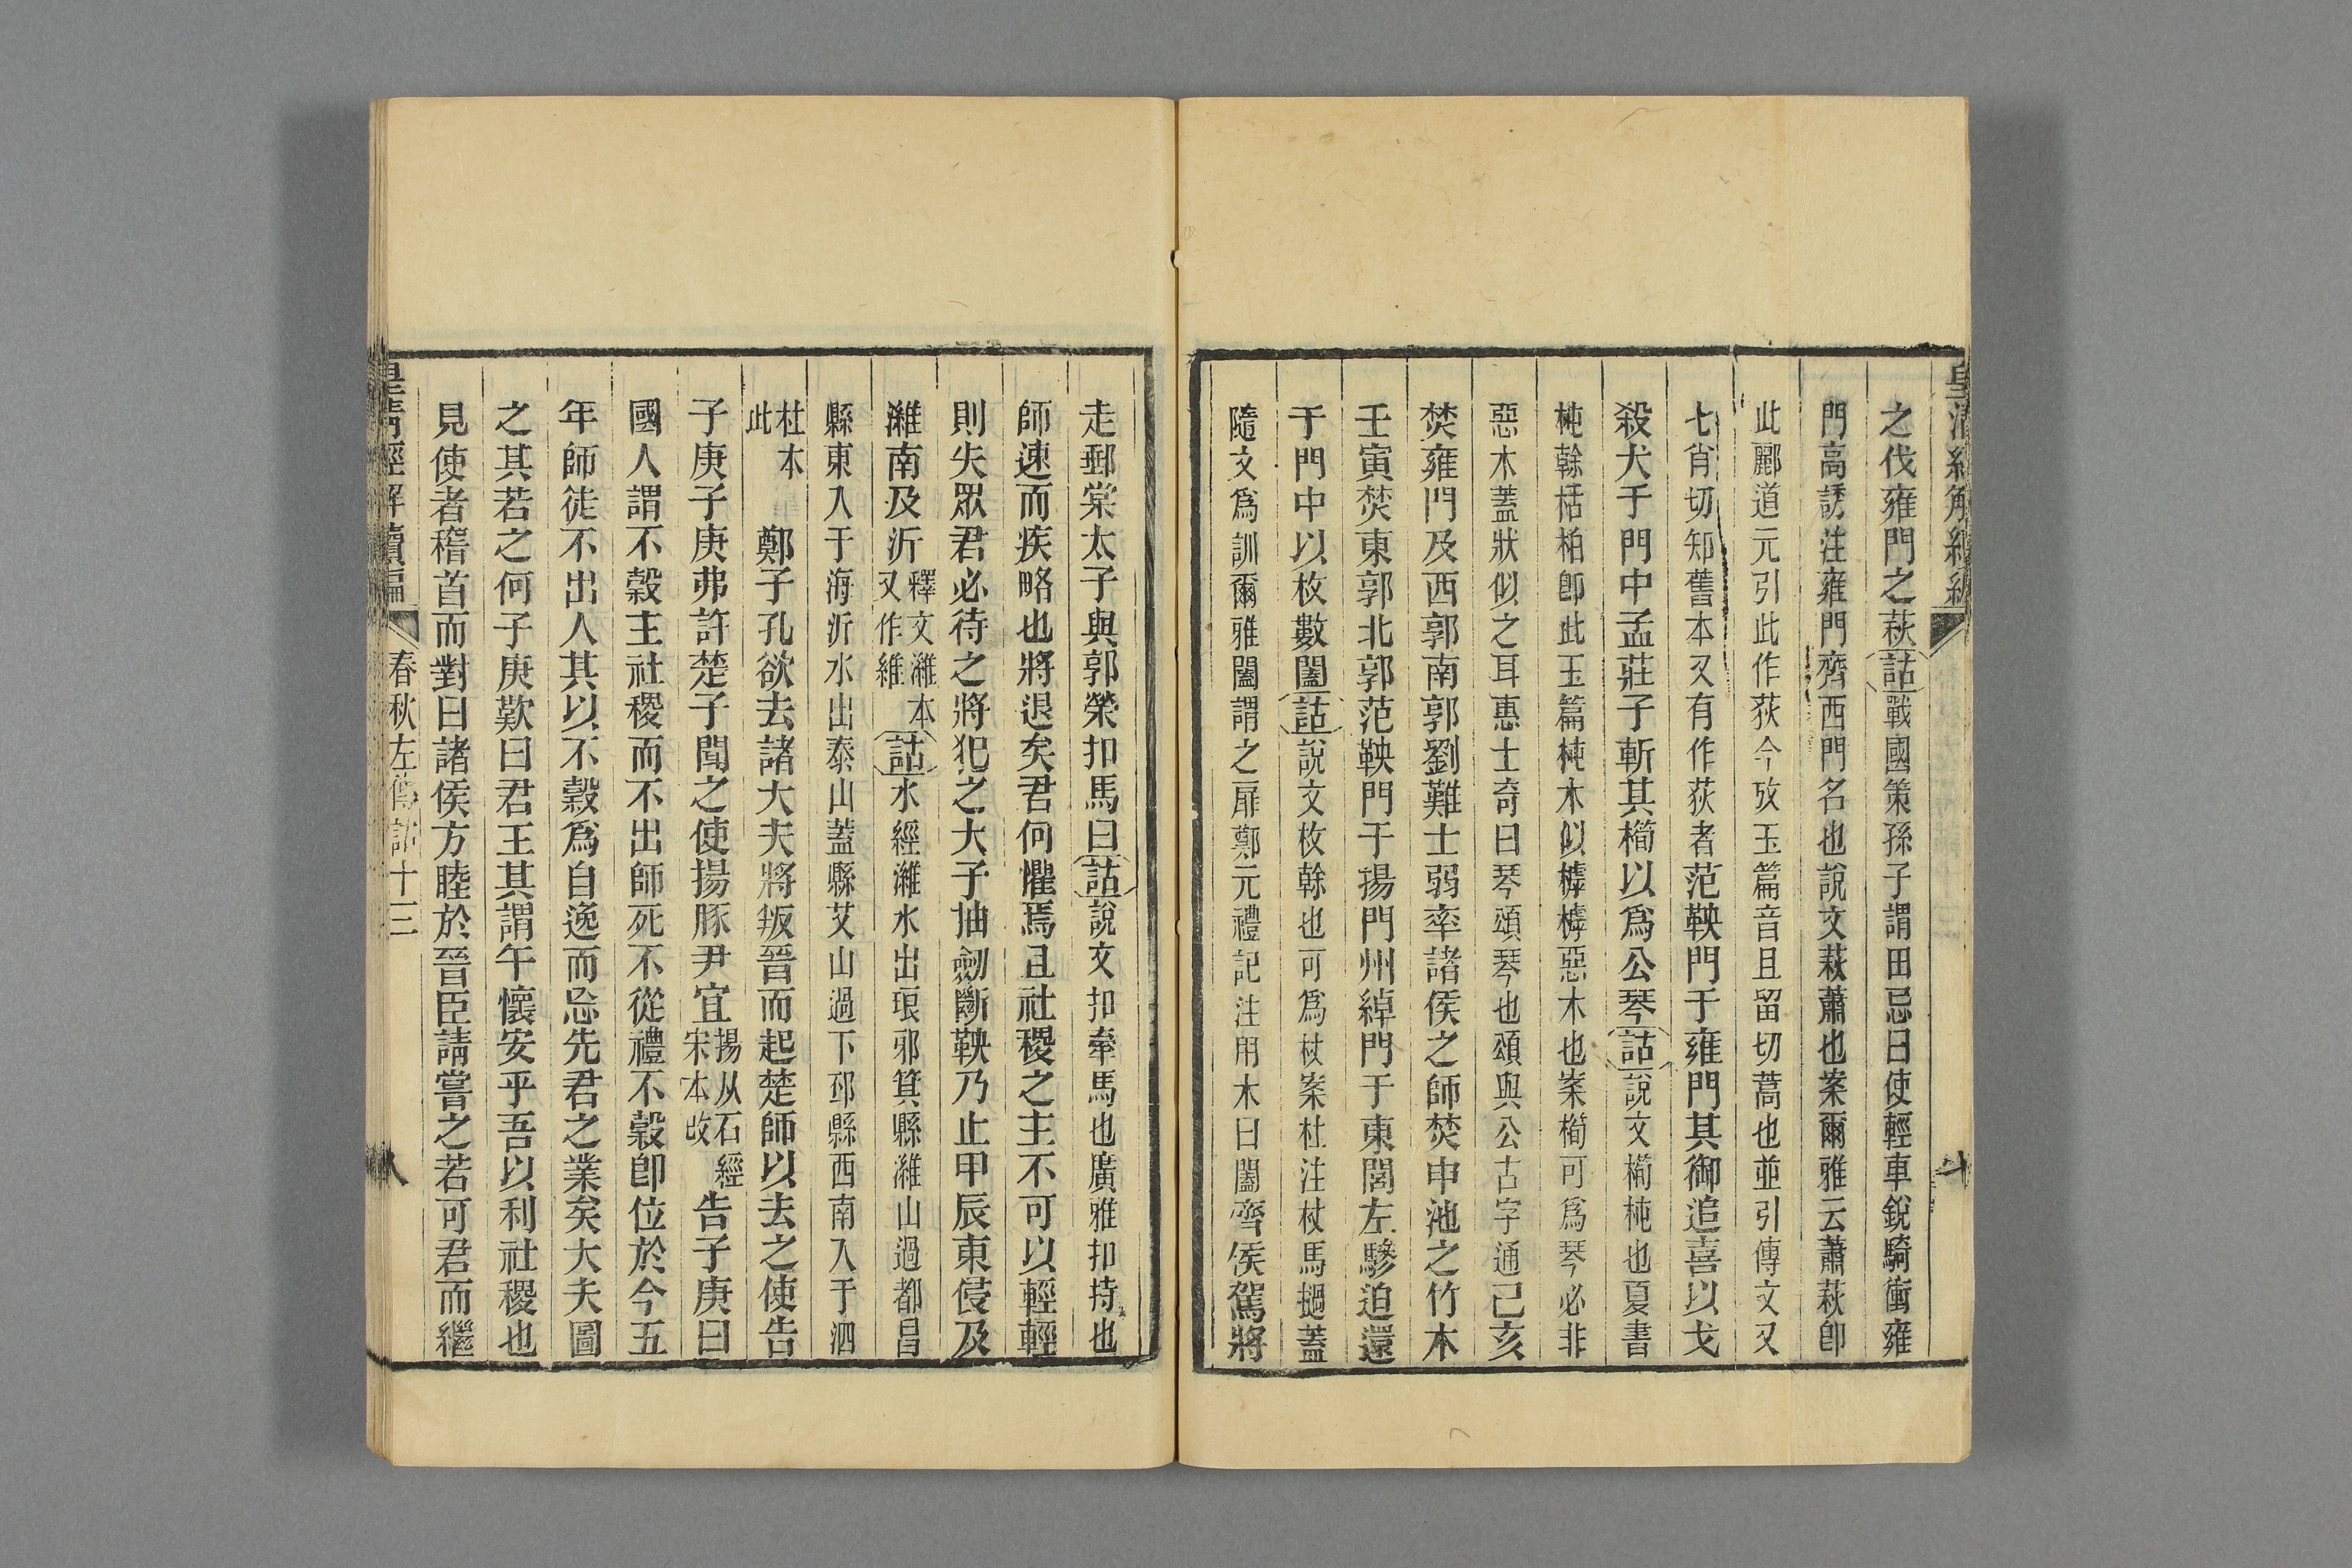 之伐雍門之萩詁戰國策孫子謂田忌曰使輕車銳騎衝雍
門高誘注雍門齊西門名也說文萩蕭也案爾雅云蕭萩卽
此酈道元引此作荻今攷玉篇音且留切蒿也並引傳文又
七肖切知舊本又有作荻者范鞅門于雍門其御追喜以戈
殺犬于門中孟莊子斬其橁以爲公琴詁說文橁杶也夏書
杶榦栝柏卽此玉篇杶木似樗樗惡木也案橁可爲琴必非
惡木蓋狀似之耳惠士奇曰琴頌琴也頌與公古字通己亥
焚雍門及西郭南郭劉難士弱率諸侯之師焚申池之竹木
壬寅焚東郭北郭范鞅門于揚門州綽門于東閭左驂迫還
于門中以枚數闔詁說文枚榦也可爲杖案杜注杖馬撾蓋
隨文爲訓爾雅闔謂之扉鄭元禮記注用木曰闔齊侯駕將
走郵棠太子與郭榮扣馬曰詁說文扣牽馬也廣雅扣持也
師速而疾略也將退矣君何懼焉且社稷之主不可以輕輕
則失眾君必待之將犯之大子抽劒斷鞅乃止甲辰東侵及
濰南及沂釋文濰本又作維詁水經濰水出琅邪箕縣濰山過都昌
縣東入于海沂水出泰山蓋縣艾山過下邳縣西南入于泗
杜本此鄭子孔欲去諸大夫將叛晉而起楚師以去之使告
子庚子庚弗許楚子聞之使揚豚尹宜揚从石經宋本改告子庚曰
國人謂不穀主社稷而不出師死不從禮不穀卽位於今五
年師徒不出人其以不穀爲自逸而忘先君之業矣大夫圖
之其若之何子庚歎曰君王其謂午懷安乎吾以利社稷也
見使者稽首而對曰諸侯方睦於晉臣請嘗之若可君而繼
皇清經解續編 春秋左傳詁十三 八